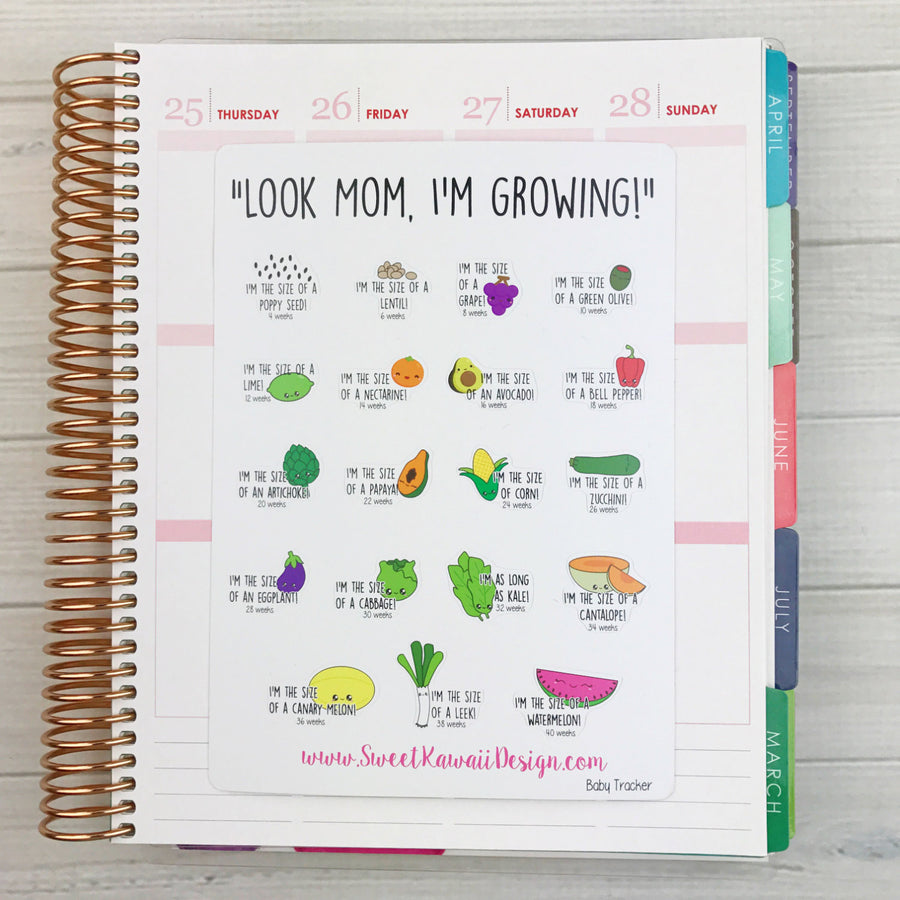 25 THURSDAY 26 FRIDAY 27 SATURDAY 28 SUNDAY
"LOOK MOM, I'M GROWING!"
I'M THE SIZE OF A
POPPY SEED!
4 weeks
I'M THE SIZE OF A
LENTIL!
6 weeks
I'M THE SIZE
OF A
GRAPE!
8 weeks
I'M THE SIZE
OF A GREEN OLIVE!
10 weeks
I'M THE SIZE OF A
LIME!
12 weeks
I'M THE SIZE
OF A NECTARINE!
14 weeks
I'M THE SIZE
OF AN AVOCADO!
16 weeks
I'M THE SIZE
OF A BELL PEPPER!
18 weeks
I'M THE SIZE
OF AN ARTICHOKE!
20 weeks
I'M THE SIZE
OF A PAPAYA!
22 weeks
I'M THE SIZE
OF CORN!
24 weeks
I'M THE SIZE OF A
ZUCCHINI!
26 weeks
I'M THE SIZE
OF AN EGGPLANT!
28 weeks
I'M THE SIZE
OF A CABBAGE!
30 weeks
I'M AS LONG
AS KALE!
32 weeks
I'M THE SIZE OF A
CANTALOPE!
34 weeks
I'M THE SIZE
OF A CANARY MELON!
36 weeks
I'M THE SIZE
OF A LEEK!
38 weeks
I'M THE SIZE OF A
WATERMELON!
40 weeks
www.SweetKawaiiDesign.com
Baby Tracker
APRIL
SEPTEMBER
MAY
JUNE
JULY
MARCH